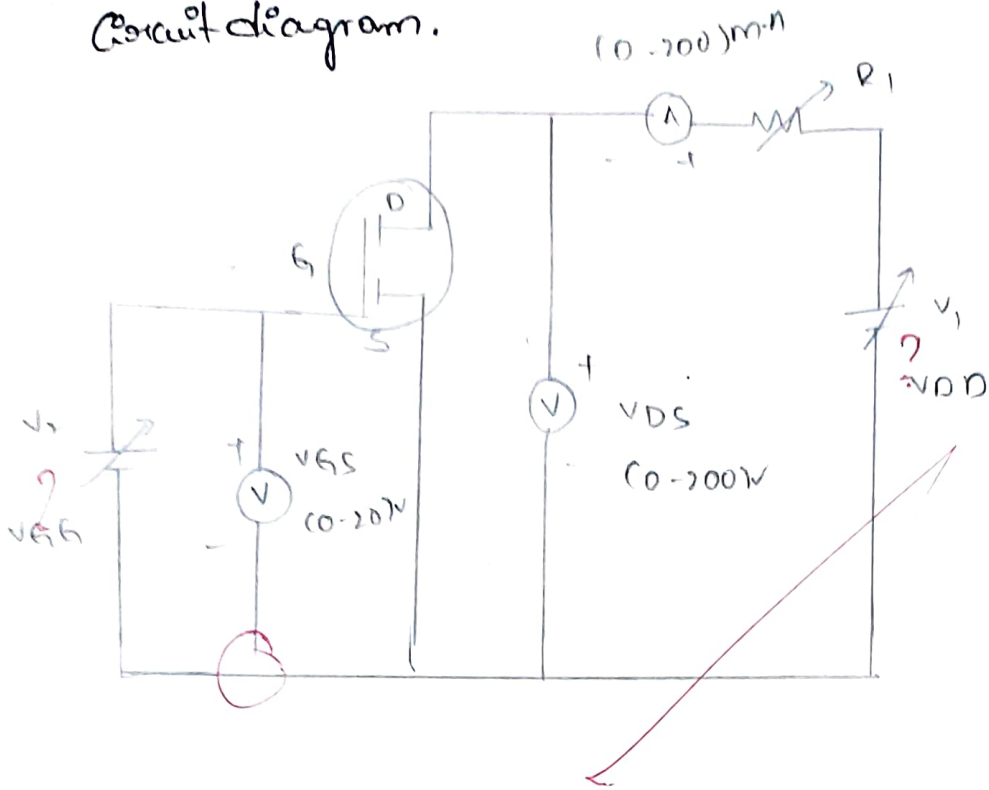 Circuit diagram.
(0-200)mA
R1
A
-
+
D
G
S
V1
?
VDD
+
V
VDS
(0-200)V
-
V2
?
VGG
+
VGS
V
(0-20)V
-